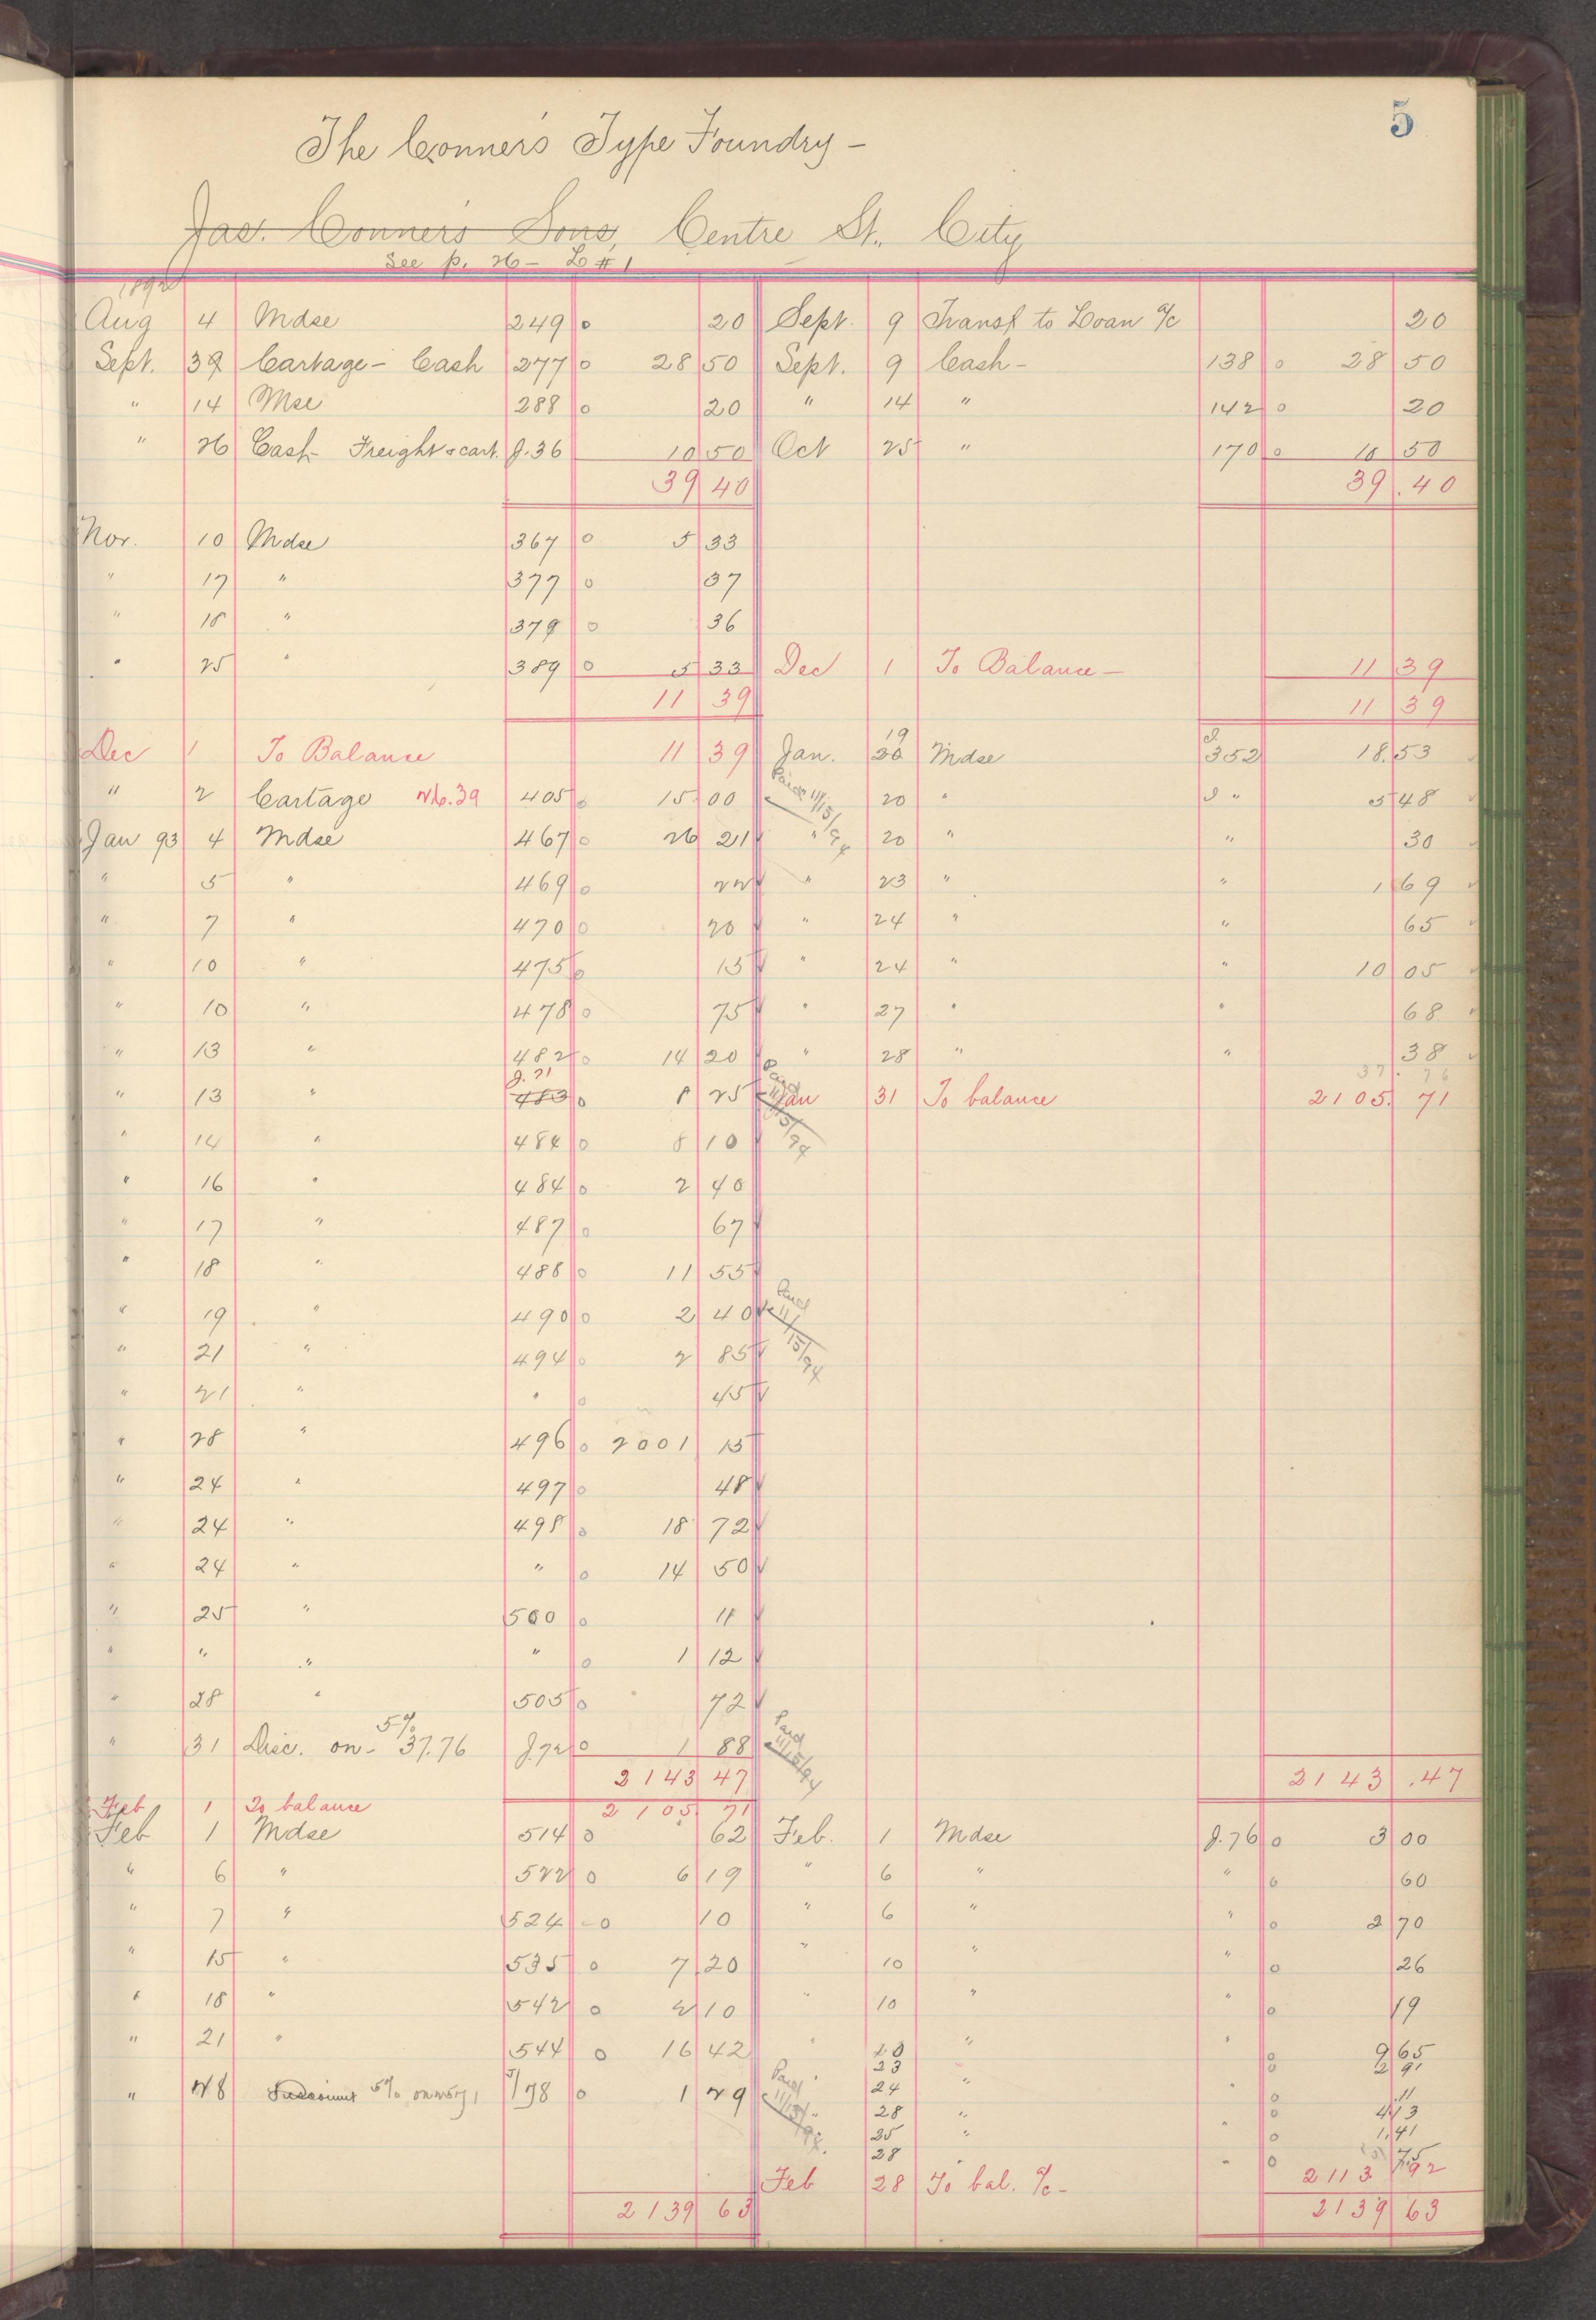 5
The Conner's Type Foundry –
Jas. Conner's Sons, Centre St., City
See p. 26 – L #1
1892
Aug 4 Mdse 249 0 20 Sept. 9 Transf to Loan a/c 20
Sept. 39 Cartage – Cash 277 0 28 50 Sept. 9 Cash – 138 0 28 50
" 14 Mse 288 0 20 " 14 " 142 0 20
" 26 Cash – Freight & cart. J.36 10 50 Oct 25 " 170 0 10 50
39 40 39.40
Nov. 10 Mdse 367 0 5 33
" 17 " 377 0 37
" 18 " 379 0 36
" 25 " 389 0 5 33 Dec 1 To Balance – 11 39
11 39 11 39
Dec 1 To Balance 11 39 Jan. 19 20 Mdse J 352 18.53
" 2 Cartage 26.39 405 0 15 00 Paid 11/15/94 20 " J " 5 48
Jan 93 4 Mdse 467 0 26 21 " 20 " " 30
" 5 " 469 0 22 " 23 " " 1 69
" 7 " 470 0 20 " 24 " " 65
" 10 " 475 0 15 " 24 " " 10 05
" 10 " 478 0 75 " 27 " " 68
" 13 " 482 0 14 20 " 28 " " 38
37.76
" 13 " J.71 483 0 8 25 Paid 11/15/94 Jan 31 To balance 2105.71
" 14 " 484 0 8 10
" 16 " 484 0 2 40
" 17 " 487 0 67
" 18 " 488 0 11 55
" 19 " 490 0 2 40 Paid 11/15/94
" 21 " 494 0 2 85
" 21 " " 0 45
" 28 " 496 0 2001 15
" 24 " 497 0 48
" 24 " 498 0 18 72
" 24 " " 0 14 50
" 25 " 500 0 11
" " " " 0 1 12
" 28 " 505 0 72
" 31 Disc. 5% on – 37.76 J.72 0 1 88 Paid 11/15/94
2143 47 2143.47
Feb 1 To balance 2105.71
Feb 1 Mdse 514 0 62 Feb. 1 Mdse J.76 0 3 00
" 6 " 522 0 6 19 " 6 " " 0 60
" 7 " 524 – 0 10 " 6 " " 0 2 70
" 15 " 535 0 7 20 " 10 " " 0 26
" 18 " 542 0 2 10 " 10 " " 0 19
" 21 " 544 0 16 42 " 20 " " 0 9 65
23 0 2 91
" 28 Discount 5% on J/78 0 1 29 Paid 11/15/94 24 " " 0 11
28 " 0 4 13
25 " " 0 1.41
28 " 0 75
Feb 28 To bal. a/c – 2113 92
2139 63 2139 63